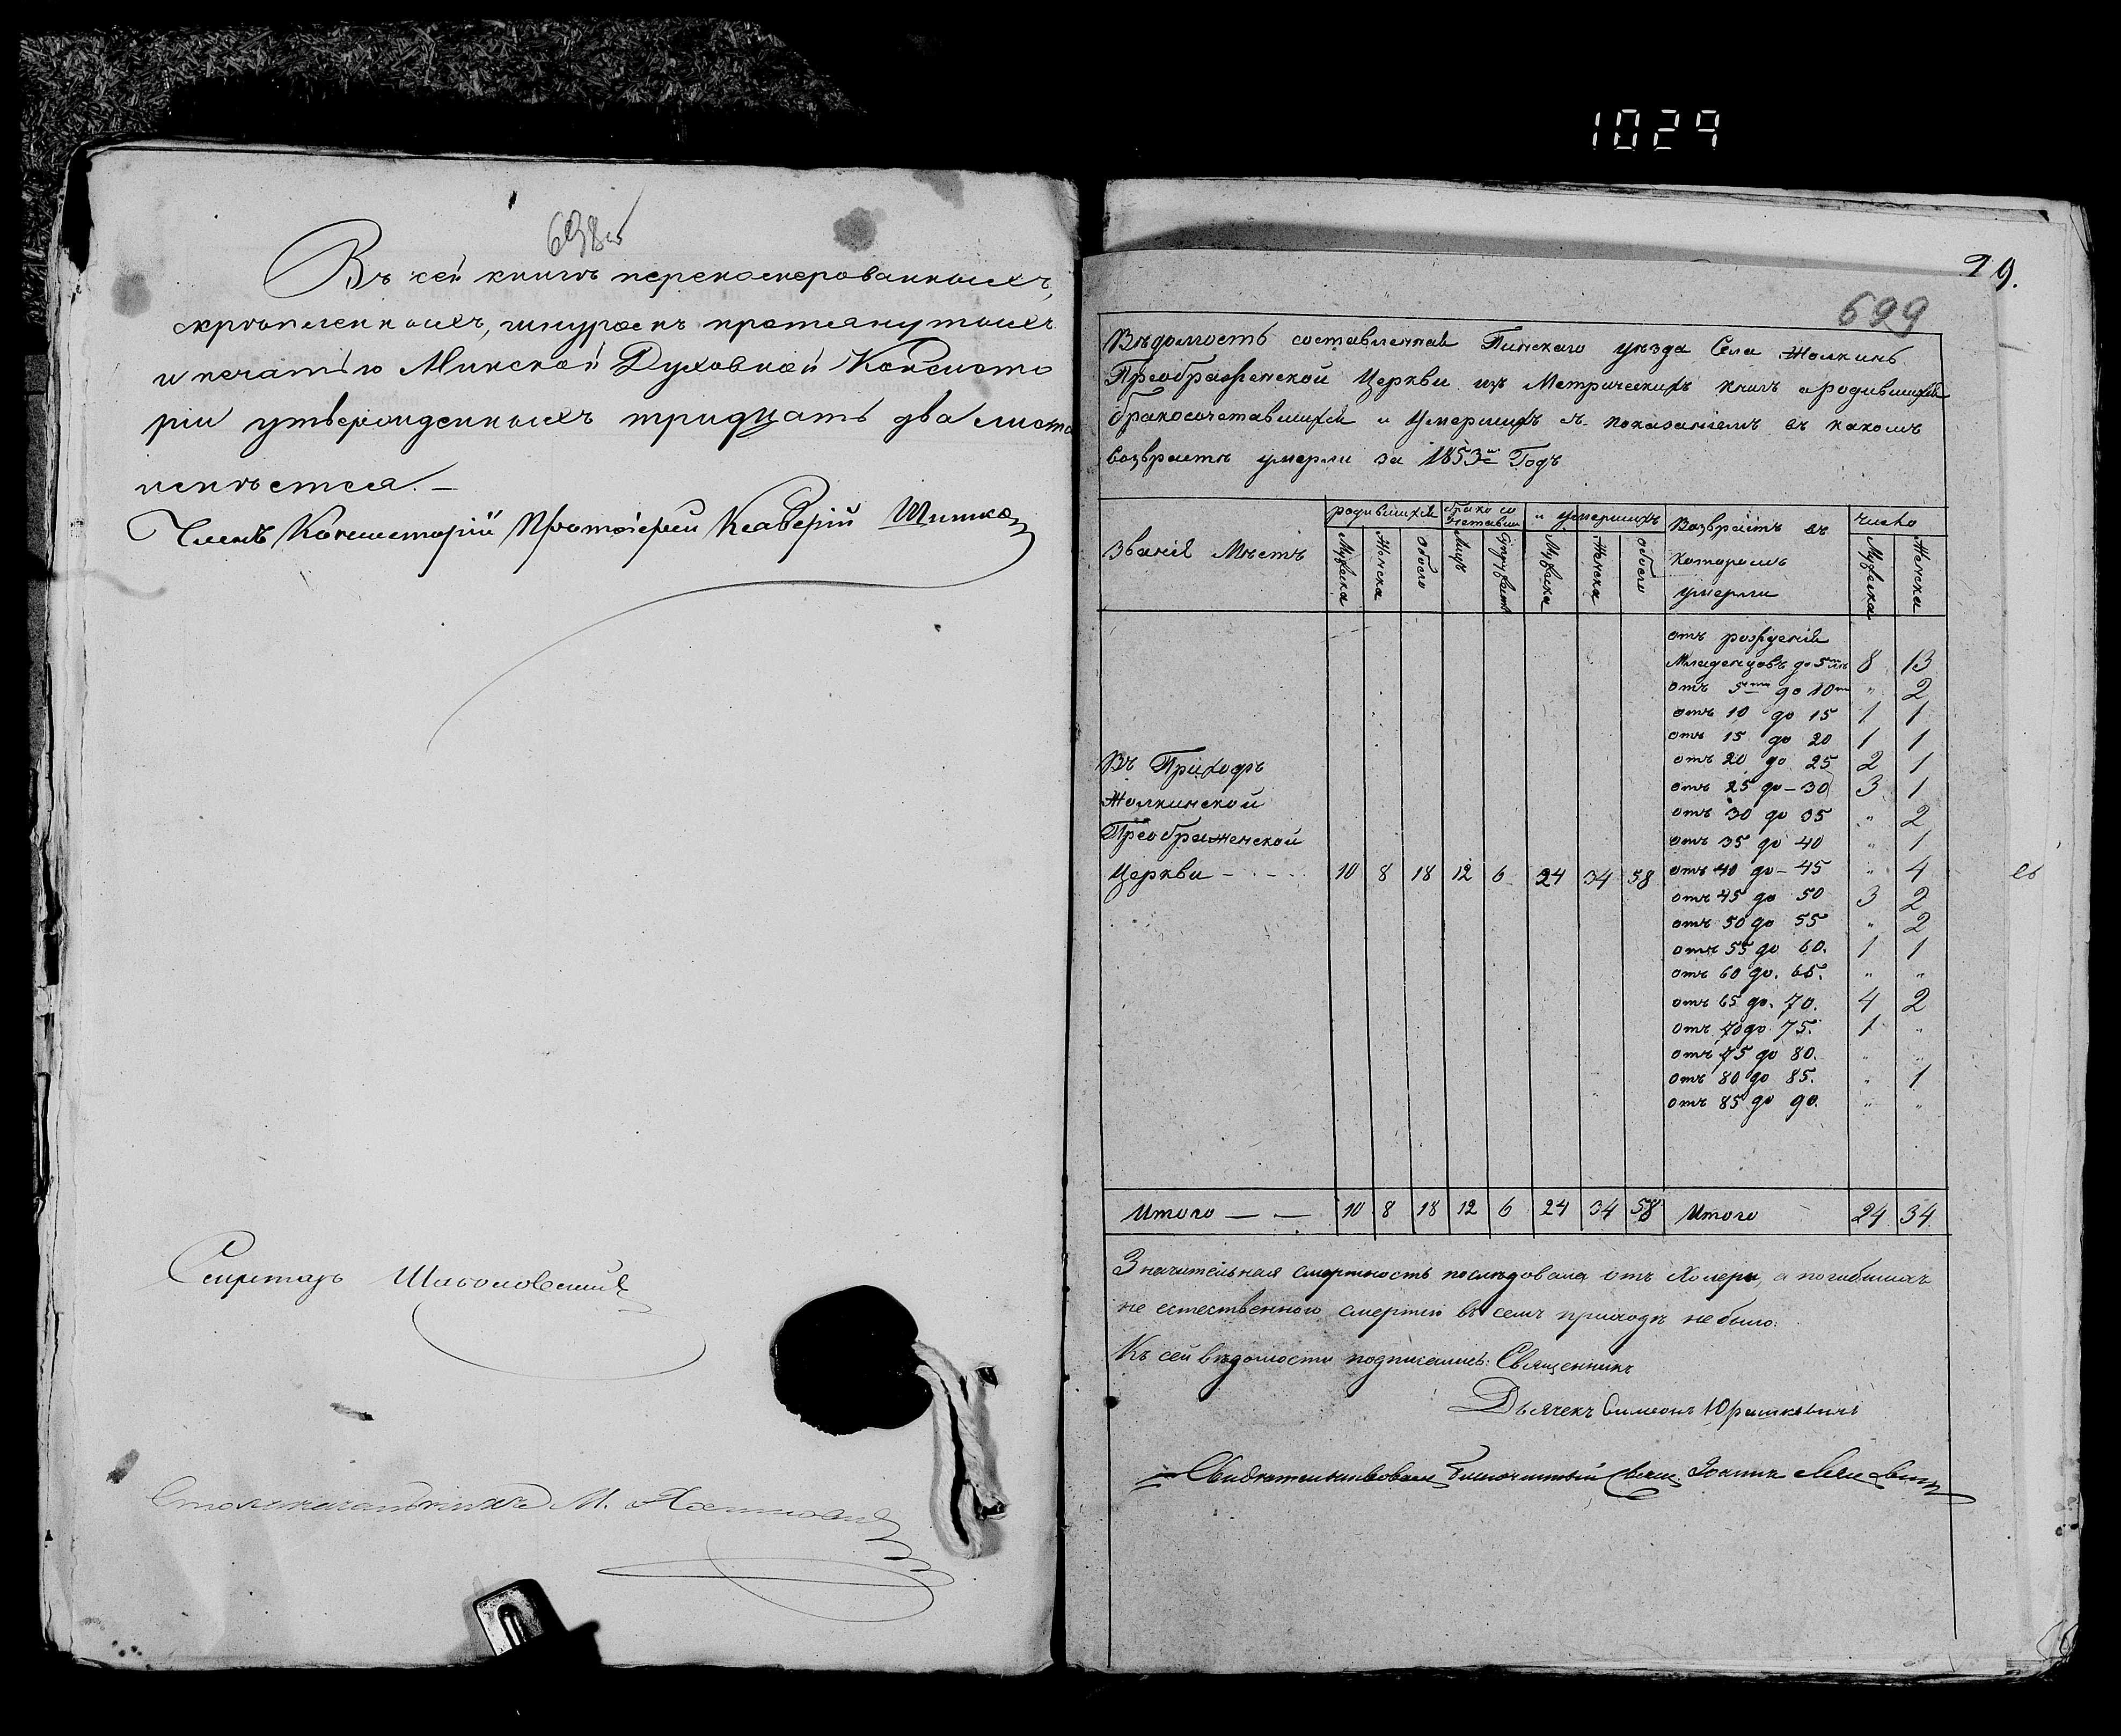 1029
698 об
Въ сей книгѣ перенумерованныхъ,
скрѣпленныхъ, шнуромъ протянутыхъ
и печатью Минской Духовной Консисто
ріи утвержденныхъ тридцать два листа
имѣется. —
Членъ Консисторіи Протоіерей Ксаверій
Секретарь
Столоначальникъ М.
29.
699
Вѣдомость составленная Пинскаго уѣзда Села Жолкинъ
Преображенской Церкви изъ Метрическихъ книгъ о родившихся
бракосочетавшихся и умершихъ съ показаніемъ въ какомъ
возврастѣ умерли за 1853й Годъ
Званіе Мѣстъ родившихся брако со четавши и умершихъ Возврастъ въ которомъ умерли число
Мужеска Женска обоего Лицъ Супружествъ Мужеска Женска обоего Мужеска Женска
отъ рожденія
Младенцовъ до 5 лѣтъ 8 13
отъ 5ти до 10ти " 2
отъ 10 до 15 1 1
отъ 15 до 20 1 1
отъ 20 до 25 2 1
отъ 25 до — 30 3 1
отъ 30 до 35 " 2
отъ 35 до 40 " 1
Въ Приходѣ
Жолкинской
Преображенской
Церкви - - - - 10 8 18 12 6 24 34 58 отъ 40 до — 45 " 4
отъ 45 до 50 3 2
отъ 50 до 55 " 2
отъ 55 до 60. 1 1
отъ 60 до. 65. " "
отъ 65 до. 70. 4 2
отъ 70 до 75. 1 "
отъ 75 до 80. " "
отъ 80 до 85. " 1
отъ 85 до 90. " "
Итого — — 10 8 18 12 6 24 34 58 Итого 24 34
Значительная смертность послѣдовала отъ Холеры, а погибшихъ
не естественною смертію въ семъ приходѣ не было.
Къ сей вѣдомости подписались: Священникъ
Дьячекъ Симеонъ Юрашкевичъ
Свидѣтельствовалъ Благочинный Свящ. Іоаннъ